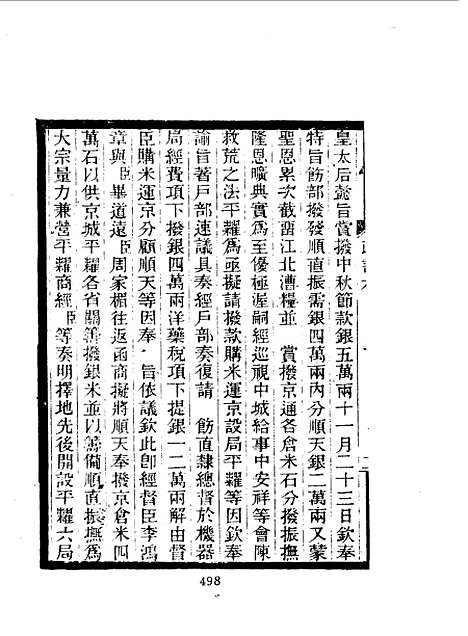 皇太后懿旨賞撥中秋節款銀五萬兩十一月二十三日欽奉
特旨飭部撥發順直振需銀四萬兩內分順天銀二萬兩又蒙
聖恩累次截畱江北漕糧並 賞撥京通各倉米石分撥振撫
隆恩曠典實爲至優極渥嗣經巡視中城給事中安祥等會陳
救荒之法平糶爲亟擬請撥款購米運京設局平糶等因欽奉
諭旨著戶部速議具奏經戶部奏復請 飭直隸總督於機器
局經費項下撥銀四萬兩洋藥稅項下提銀一二萬兩解由督
臣購米運京分顧順天等因奉 旨依議欽此卽經督臣李鴻
章與臣畢道遠臣周家楣往返函商擬將順天奉撥京倉米四
萬石以供京城平糶各省關籌撥銀米並以籌備順直振撫爲
大宗量力兼營平糶商經臣等奏明擇地先後開設平糶六局
498